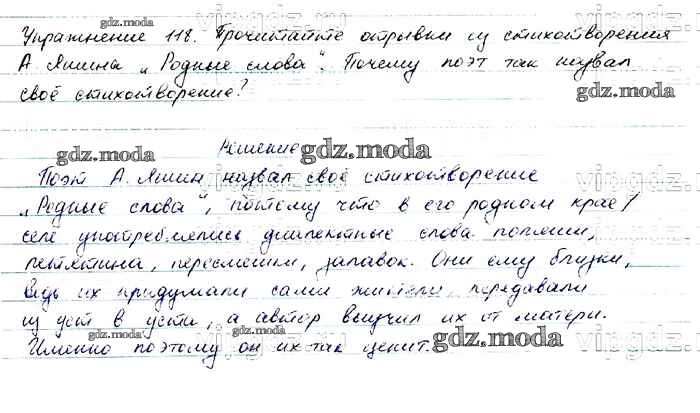 Упражнение 118. Прочитайте отрывки из стихотворения
А. Яшина „Родные слова“. Почему поэт так назвал
своё стихотворение?
Решение
Поэт А. Яшин назвал своё стихотворение
„Родные слова“, потому что в его родном крае/
селе употреблялись диалектные слова
пестятина, пересмешки, залавок. Они ему близки,
ведь их придумали сами жители, передавали
из уст в уста, а автор выучил их от матери.
Именно поэтому он их так ценит.
gdz.moda
gdz.moda
gdz.moda
gdz.moda
gdz.moda
gdz.moda
vipgdz.ru
vipgdz.ru
vipgdz.ru